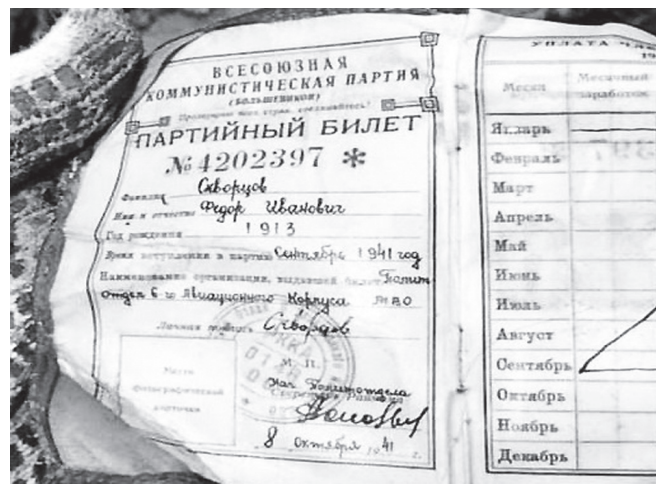 ВСЕСОЮЗНАЯ
КОММУНИСТИЧЕСКАЯ ПАРТИЯ
(БОЛЬШЕВИКОВ)
Пролетарии всех стран, соединяйтесь!
ПАРТИЙНЫЙ БИЛЕТ
№ 4202397 *
Фамилия Скворцов
Имя и отчество Федор Иванович
Год рождения 1913
Время вступления в партию Сентябрь 1941 год
Наименование организации, выдавшей билет Полит-
отдел 6 го Авиационного Корпуса
Личная подпись Скворцов
М. П.
Нач Политотдела
Секретарь Райкома
Место
фотографической
карточки
8 октября 1941 г.
УПЛАТА
19
Месяц
Месячный
заработок
Январь
Февраль
Март
Апрель
Май
Июнь
Июль
Август
Сентябрь
Октябрь
Ноябрь
Декабрь